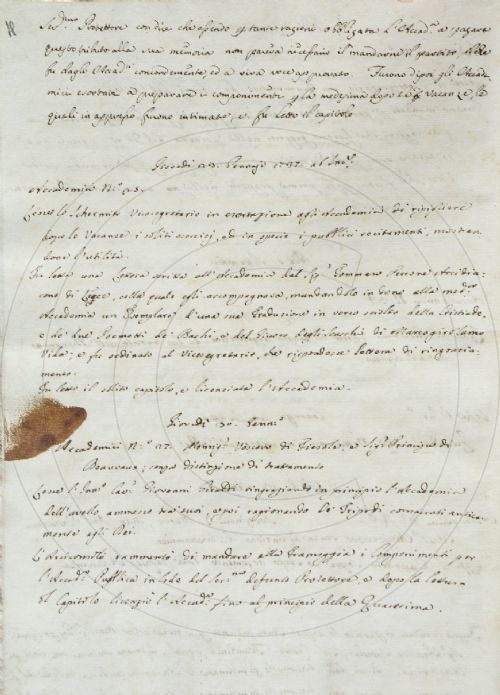 Ser.mo Protettore con dire che essendo p tante ragioni obbligata l'Accad.a a pagare
questo tributo alla sua memoria non pareva necessario il mandarne il partito,
fu dagli Accad.i concordemente, ed a viva voce approvato. Furono dipoi gli Accade
mici esortati a preparare i componimenti p la medesima dopo le vacanze, le
quali in appresso furono intimate, e fu letto il capitolo
Giovedì 23. Gennajo al
Accademici N.o
Lesse lo Schernito Vicesegretario in esortazione agli Accademici di ripigliare
dopo le Vacanze i soliti esercizj, ed in specie i pubblici recitamenti, mostran
done l'utilità.
Fu letta una Lettera scritta all'Accademia dal Sig.r Tommaso Perrone Arcidia
cono di Lecce, colla quale gli accompagnava, mandandolo in dono alla med.a
Accademia un Esemplare d'una sua Traduzione in verso sciolto della Cristiade,
e de due Poemetti de Bachi, e del Giuoco degli Scacchi di Girolamo
Vida; e fu ordinato al Vicesegretario, che rispondesse lettera di ringrazia
mento.
Fu letto il solito capitolo, e licenziata l'Accademia.
Giovedì 30. Genn.o
Accademici N.o 27. Monsig.r Vescovo di Fiesole, e Sig.r Principe di
Beauvaux senza distinzione di trattamento
Lesse l'Inn.o Cav.r Giovanni Giraldi ringraziando in principio l'Accademia
dell'averlo ammesso tra suoi, e poi ragionando de Tripodi consacrati antica
mente agli Dei.
L'Arciconsolo rammentò di mandare alla Tramoggia i Componimenti per
l'Accad.a Pubblica in lode del Ser.mo defunto Protettore, e dopo la lettura
del Capitolo licenziò l'Accad.a fino al principio della Quaresima.